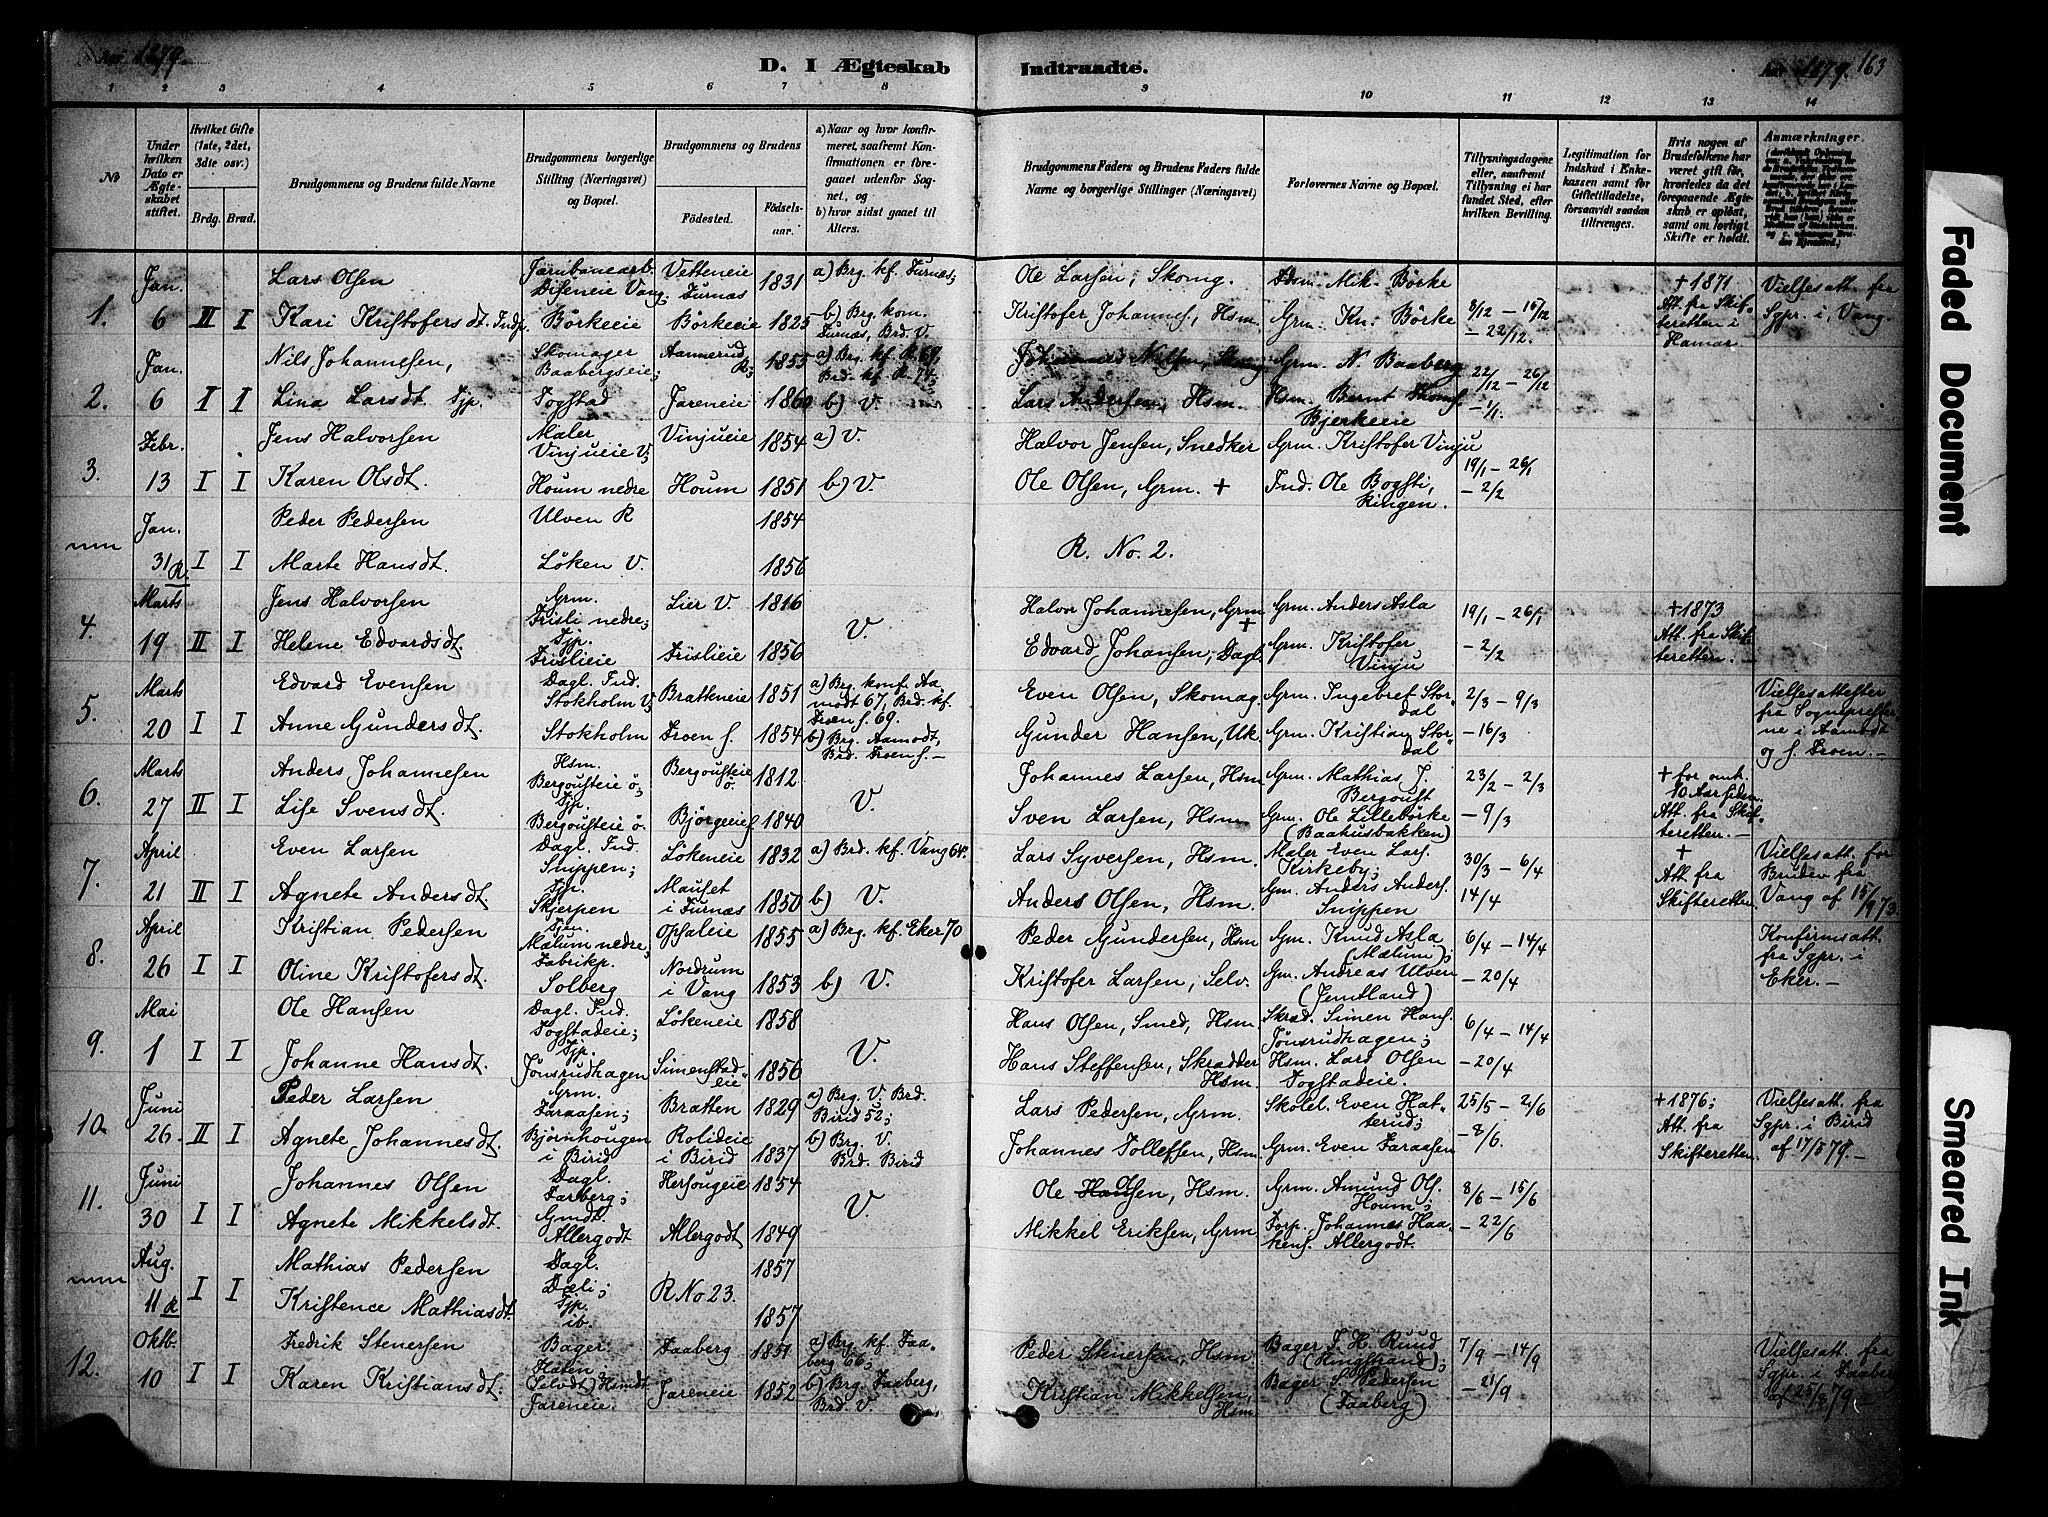 Aar 1879.
D. I Ægteskab
Indtraadte.
Aar 1879. 163
1 2 3 4 5 6 7 8 9 10 11 12 13 14
№
Under hvilken Dato er Ægteskabet stiftet.
Hvilket Gifte (1ste, 2det, 3dte osv.)
Brdg. Brud.
Brudgommens og Brudens fulde Navne
Brudgommens borgerlige Stilling (Næringsvei) og Bopæl.
Brudgommens og Brudens
Födested.
Födselsaar.
a) Naar og hvor konfirmeret, saafremt Konfirmationen er foregaaet udenfor Sognet, og
b) hvor sidst gaaet til Alters.
Brudgommens Faders og Brudens Faders fulde Navne og borgerlige Stillinger (Næringsvei)
Forlovernes Navne og Bopæl.
Tillysningsdagene eller, saafremt Tillysning ei har fundet Sted, efter hvilken Bevilling.
Legitimation for Indskud i Enkekassen samt for Giftetilladelse, forsaavidt saadan tiltrænges.
Hvis nogen af Brudefolkene har været gift för, hvorledes da det foregaaende Ægteskab er oplöst, samt om lovligt Skifte er holdt.
Anmærkninger.
1. Jan. 6 II I
Lars Olsen Jarnbanearb. Diseneie Vang; Vetteneie Furnæs 1831 a) Brg. kf. Furnæs; Ole Larsen, Skomg. Hsm. Mik. Börke
Kari Kristofersdt. Indp. Börkeeie Börkeeie 1825 b) Brg. kom. Furnæs, Brd. V. Kristofer Johannes., Hsm. Grm. Kn. Börke 8/12 – 15/12 – 22/12.
+ 1871 Att. fra Skifteretten i Hamar
Vielsesatt. fra Sgpr. i Vang.
2. Jan. 6 I I
Nils Johannesen, Skomager Baabergseie; Aannerud R; 1855 a) Brg. kf. R. 69, Brd. kf. R. 74; Johannes Nilsen, Skomg. Grm. N. Baaberg 22/12 – 26/12 – 1/1.
Lina Larsdt. Tjp. Togstad Fareneie 1860 b) V. Lars Andersen, Hsm. Hsm. Bernt Bjerkeeie
3. Febr. 13 I I
Jens Halvorsen Maler Vinjueie V; Vinjueie 1854 a) V. Halvor Jensen, Snedker Grm. Kristofer Vinju 19/1 – 26/1 – 2/2
Karen Olsdt. Houm nedre Houm 1851 b) V. Ole Olsen, Grm. + Ind. Ole Bogsti, Ringen.
Jan. 31 R. I I
Peder Pedersen Ulven R 1854
Marte Hansdt. Löken V. 1856 R. No. 2.
4. Marts 19 II I
Jens Halvorsen Grm. Frisli nedre; Lier V. 1816 V. Halvor Johannesen, Grm + Grm. Anders Asla 19/1 – 26/1 – 2/2
Helene Edvardsdt. Tjp. Frislieie Frislieie 1856 Edvard Johansen, Dagl. Grm. Kristofer Vinju
+ 1873 Att. fra Skifteretten. –
5. Marts 20 I I
Edvard Evensen Dagl. Ind. Stokholm V; Bratteneie 1851 a) Brg. konf. Aamodt 67, Brd. kf. Froen s. 69. Even Olsen, Skomag. Grm. Ingebret Stordal 2/3 – 9/3 – 16/3
Anne Gundersdt. Stokholm Froen s. 1854 b) Brg. Aamodt, Brd. Froen s. – Gunder Hansen, Uk. Grm. Kristian Stordal
Vielsesattester fra Sognepresterne i Aamodt og s. Froen. –
6. Marts 27 II I
Anders Johannesen Hsm. Bergousteie ö; Bergousteie ö. 1812 V. Johannes Larsen, Hsm. Grm. Mathias J. Bergoust 23/2 – 2/3 – 9/3
Lise Svensdt. Tjp. Bergousteie ö. Björgeeie 1840 Sven Larsen, Hsm Grm. Ole Lilleborke (Baahusbakken)
+ for omk. 10 Aar siden. Att. fra Skifteretten. –
7. April 21 II I
Even Larsen Dagl. Ind. Snippen; Lökeneie 1832 a) Brd. kf. Vang 64. Lars Syversen, Hsm. Maler Even Lars. Kirkeby; 30/3 – 6/4 14/4
Agnete Andersdt. Tjp. Skjerpen Mauset i Furnæs 1850 b) V. Anders Olsen, Hsm. Gm. Anders Anders. Snippen
+ Att. fra Skifteretten.
Vielsesatt. for Bruden fra Vang af 15/9 73.
8. April 26 I I
Kristian Pedersen Tjen. Mælum nedre; Opsaleie 1855 a) Brg. kf. Eker 70 Peder Gundersen, Hsm Grm. Knud Asla (Mælum); 6/4 – 14/4 – 20/4
Oline Kristofersdt. Fabrikp. Solberg Nordrum i Vang 1853 b) V. Kristofer Larsen, Selv. Gm. Andreas Ulven (Jemtland)
Konfirmsatt. fra Sgpr. i Eker. –
9. Mai 1 I I
Ole Hansen Dagl. Ind. Togstadeie; Lökeneie 1858 V. Hans Olsen, Smed, Hsm. Skræd. Simen Hans. Jönsrudhagen; 6/4 – 14/4 – 20/4
Johanne Hansdt. Tjp. Jönsrudhagen Simenstadeie 1856 Hans Steffensen, Skrædder Hsm. Hsm. Lars Olsen Togstadeie.
10. Juni 26 II I
Peder Larsen Grm. Faraasen; Bratten 1829 a) Brg. V. Brd. Birid 52; Lars Pedersen, Grm. Skolel. Even Hatterud; 25/5 – 2/6 – 8/6.
Agnete Johannesdt. Björnhougen i Birid Rolideie i Birid 1837 b) Brg. V. Brd. Birid Johannes Tollefsen, Hsm. Grm. Even Faraasen
+ 1876; Att. fra Skifteretten.
Vielsesatt. fra Sgpr. i Birid af 17/5 79. –
11. Juni 30 I I
Johannes Olsen Dagl. Farberg; Hersougeie 1854 V. Ole Hansen, Hsm. Grm. Amund Ols. Houm; 8/6 – 15/6 – 22/6
Agnete Mikkelsdt. Gmdt. Allergodt Allergodt 1849 Mikkel Eriksen, Grm. Forp. Johannes Haakens. Allergodt.
Aug. 11 R I I
Mathias Pedersen Dagl. Dæli; 1857
Kristence Mathiasdt. Tjp. ib. R No 23. 1857
12. Oktb. 10 I I
Fredrik Stenersen Bager Faaberg 1851 a) Brg. kf. Faaberg 66; Peder Stenersen, Hsm. Bager F. H. Ruud (Ringstrand); 7/9 – 14/9 – 21/9
Karen Kristiansdt. (Selvdt) Hsmdt. Fareneie. Fareneie 1852 b) Brg. Faaberg, Brd. V. Kristian Mikkelsen, Hsm Bager S. Pedersen (Faaberg)
Vielsesatt. fra Sgpr. i Faaberg af 25/8 79 –
Faded Document
Smeared Ink